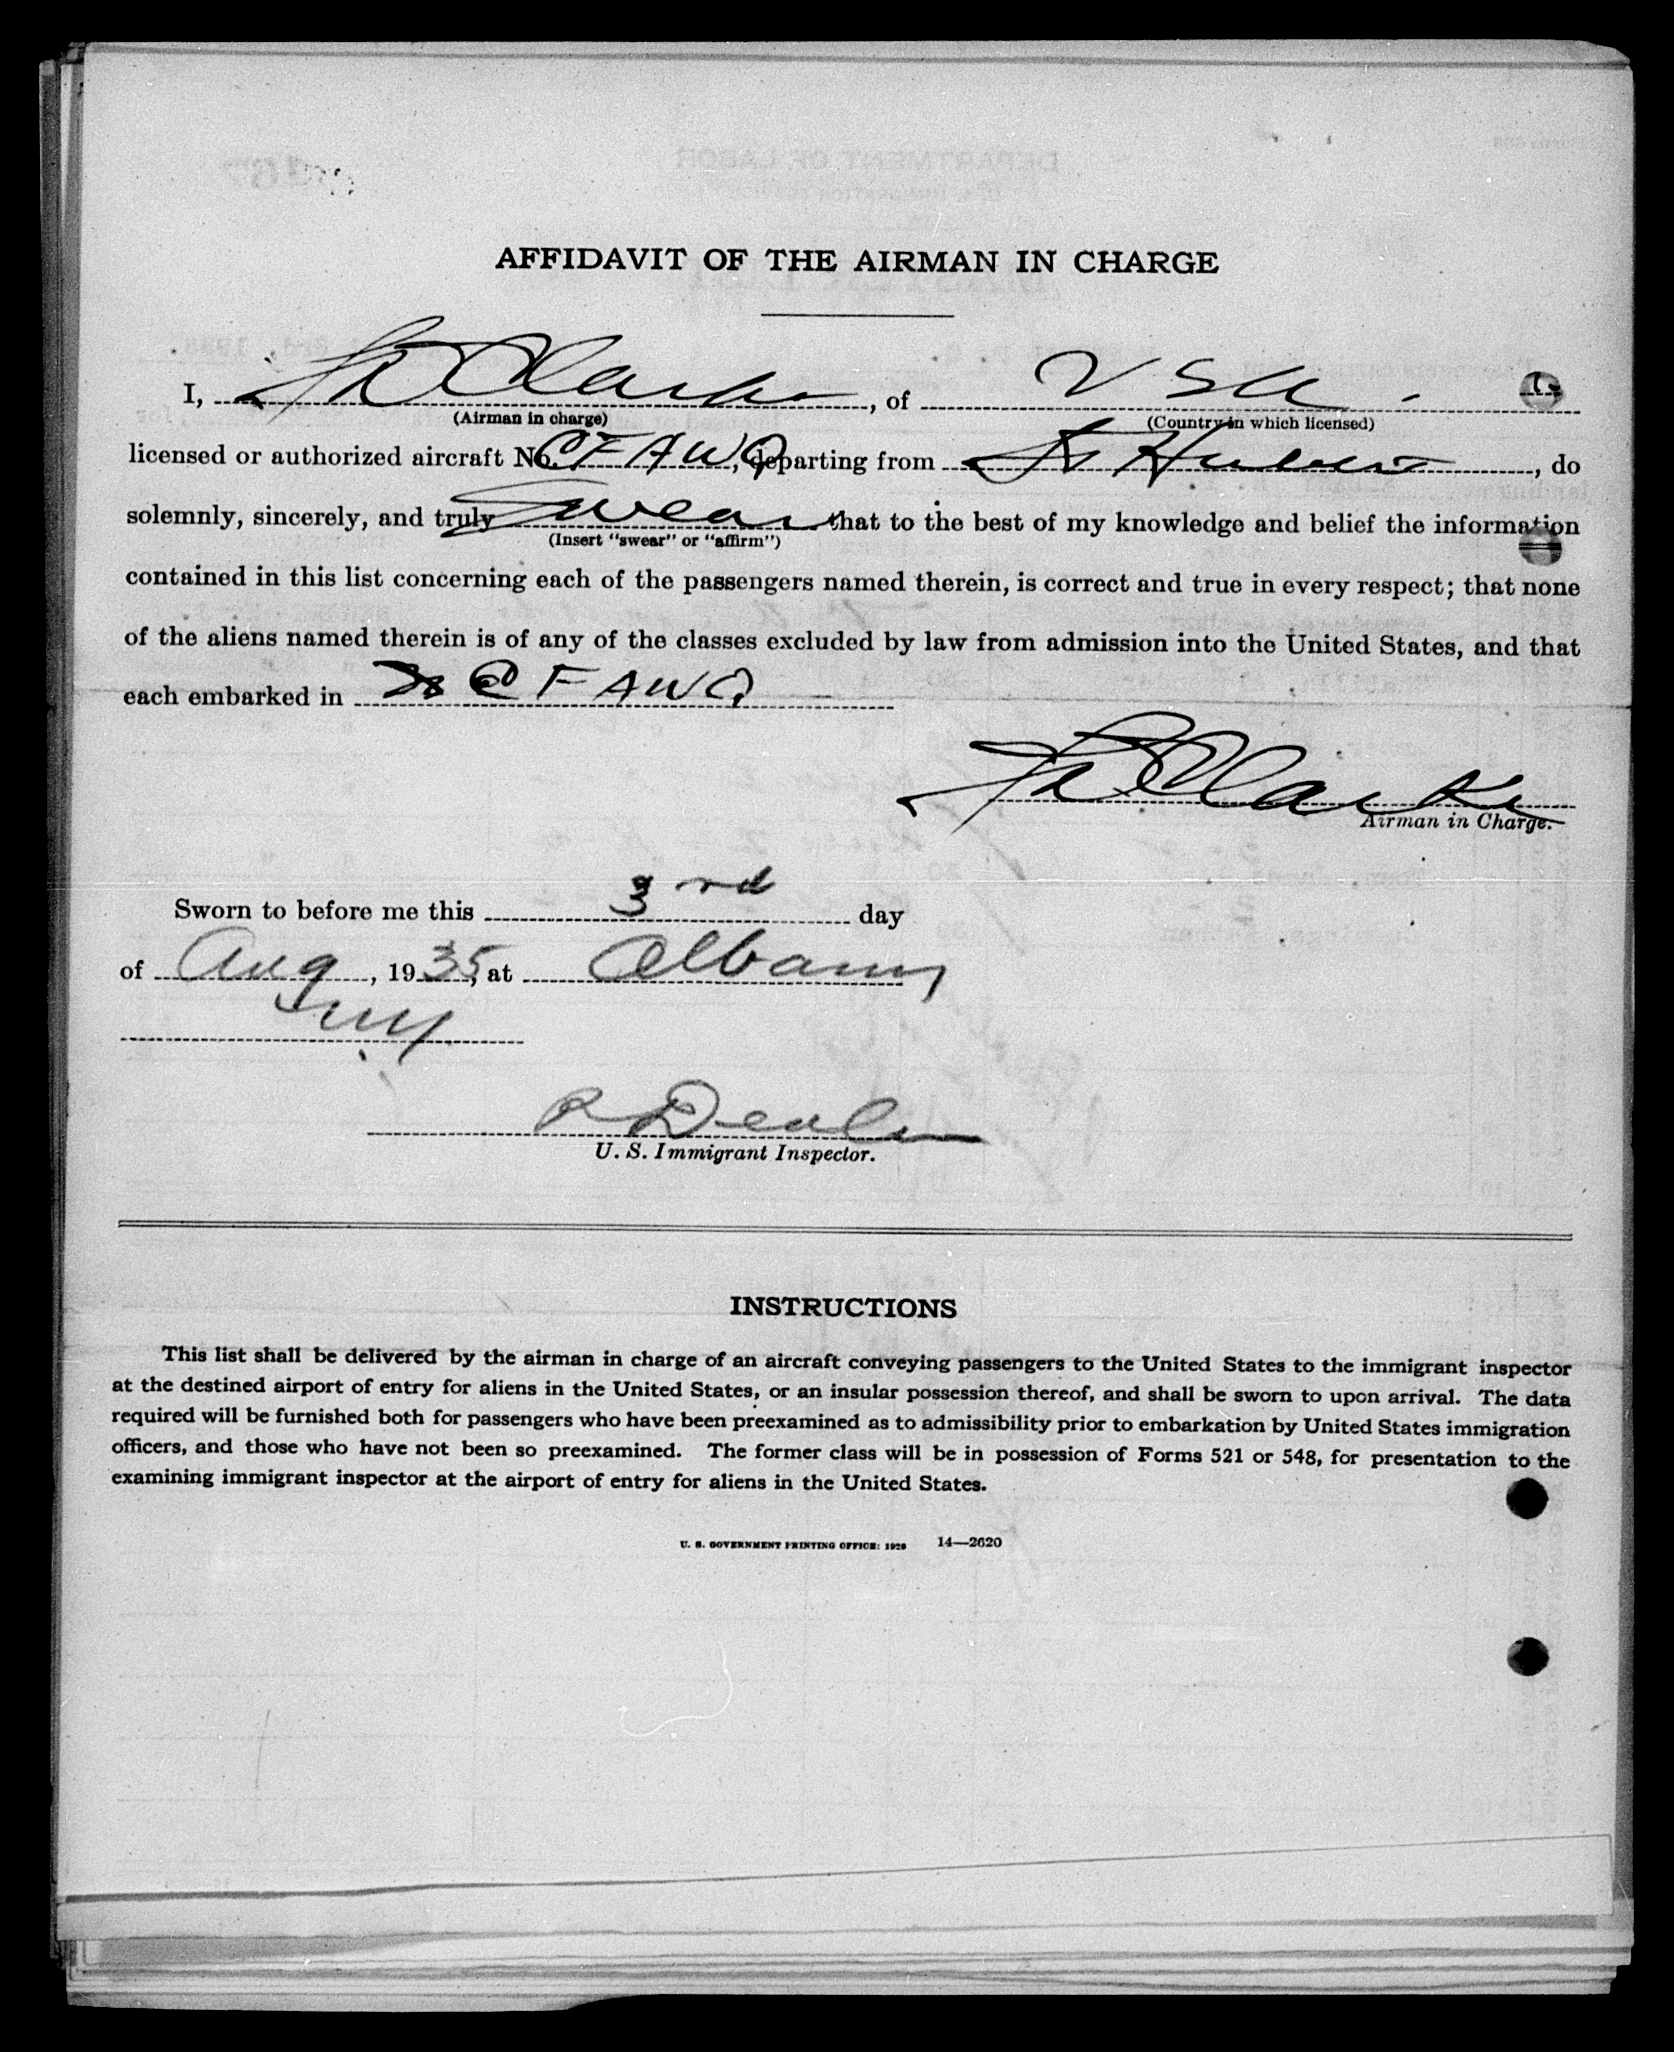 AFFIDAVIT OF THE AIRMAN IN CHARGE
I, Clarke, of USA.
(Airman in charge) (Country in which licensed)
licensed or authorized aircraft No. CFAWQ, departing from St Hubert, do
solemnly, sincerely, and truly swear that to the best of my knowledge and belief the information
(Insert "swear" or "affirm")
contained in this list concerning each of the passengers named therein, is correct and true in every respect; that none
of the aliens named therein is of any of the classes excluded by law from admission into the United States, and that
each embarked in CFAWQ
Clarke
Airman in Charge.
Sworn to before me this 3rd day
of Aug, 1935, at Albany
NY
U. S. Immigrant Inspector.
INSTRUCTIONS
This list shall be delivered by the airman in charge of an aircraft conveying passengers to the United States to the immigrant inspector
at the destined airport of entry for aliens in the United States, or an insular possession thereof, and shall be sworn to upon arrival. The data
required will be furnished both for passengers who have been preexamined as to admissibility prior to embarkation by United States immigration
officers, and those who have not been so preexamined. The former class will be in possession of Forms 521 or 548, for presentation to the
examining immigrant inspector at the airport of entry for aliens in the United States.
U. S. GOVERNMENT PRINTING OFFICE: 1929 14—2620